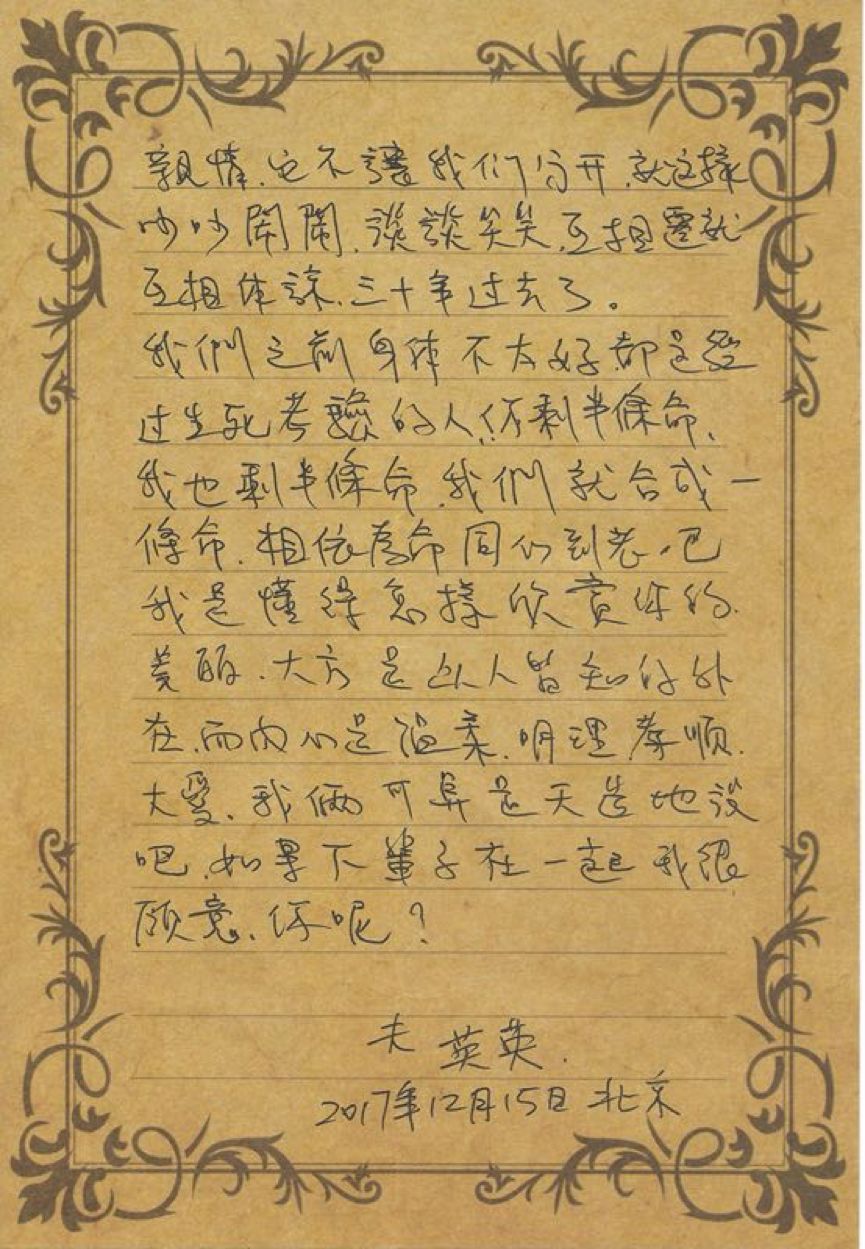 親情、它不讓我们分开、就这樣
吵吵鬧鬧、談談笑笑、互相遷就
互相体諒、三十年过去了。
我們之前身体不太好都是經
过生死考驗的人、你剩半條命、
我也剩半條命、我們就合成一
條命、相依為命同行到老、吧
我是懂得怎樣欣賞你的、
美丽、大方是众人皆知的外
在、而内心是温柔、明理孝順、
大愛、我俩可算是天造地设
吧、如果下輩子在一起我很
願意、你呢？
夫 英英.
2017年12月15日 北京